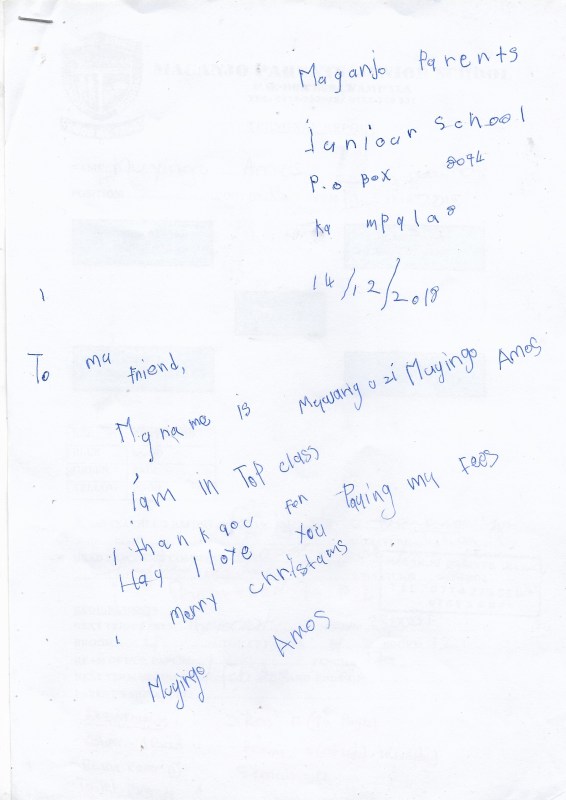 Maganjo Parents
Juniour School
P.o Box 8074
ka mpala
14/12/2018
To my friend,
My name is Mywanguzi Muyingo Amos
iam in Top class
I thank you For Paying my Fees
Hay I love You
merry christams
Muyingo Amos